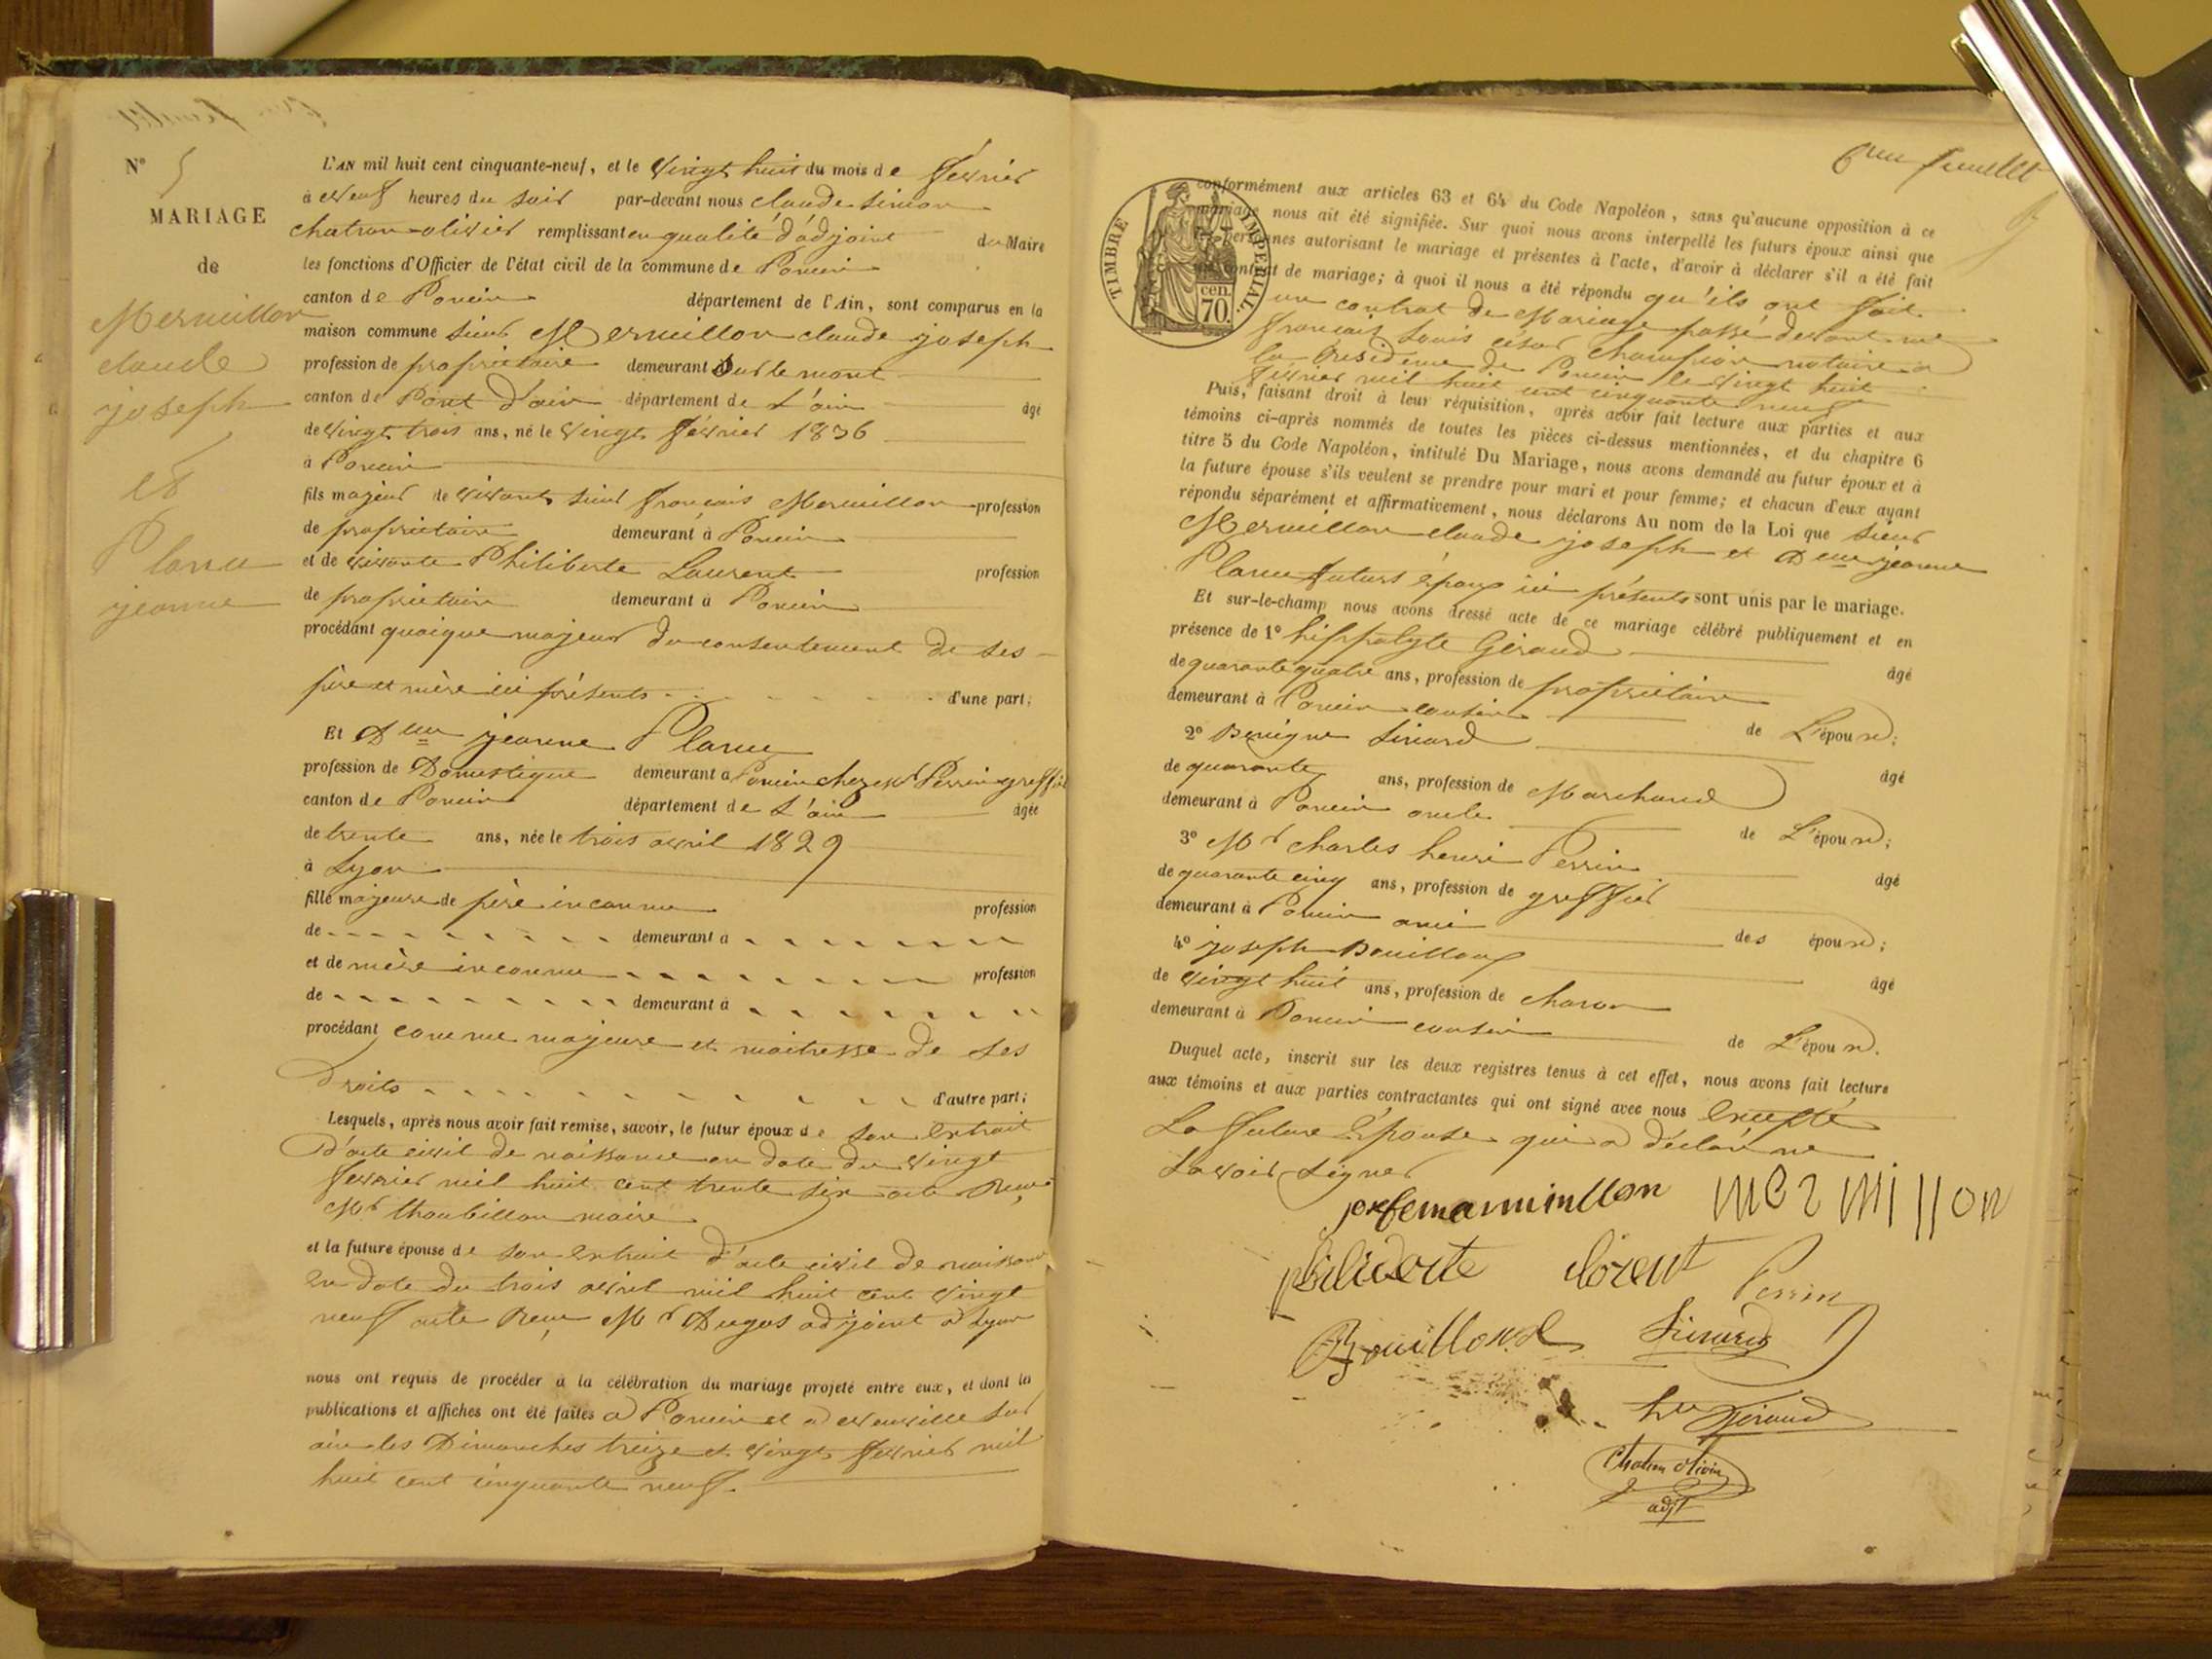 N° 5
MARIAGE
de
Mermillon
claude
joseph
et
Plance
jeanne
L'AN mil huit cent cinquante-neuf, et le vingt huit du mois de février
à neuf heures du soir par-devant nous claude simon
chatron olivier remplissant en qualité d'adjoint du Maire
les fonctions d'Officier de l'état civil de la commune de Poncin
canton de Poncin département de l'Ain, sont comparus en la
maison commune sieur Mermillon claude joseph
profession de propriétaire demeurant sur le mont
canton de Pont d'ain département de L'ain âgé
de vingt trois ans, né le vingt février 1836
à Poncin
fils majeur de vivant sieur françois Mermillon profession
de propriétaire demeurant à Poncin
et de vivante Philiberte Laurent profession
de propriétaire demeurant à Poncin
procédant quoique majeur du consentement de ses
père et mère ici présents d'une part;
Et Dlle jeanne Plance
profession de Domestique demeurant à Poncin chez Mr Perrin greffier
canton de Poncin département de L'ain âgée
de trente ans, née le trois avril 1829
à Lyon
fille majeure de père inconnu profession
de demeurant à
et de mère inconnue profession
de demeurant à
procédant comme majeure et maitresse de ses
droits d'autre part;
Lesquels, après nous avoir fait remise, savoir, le futur époux de son Extrait
D'acte civil de naissance en date du vingt
février mil huit cent trente six acte Reçu
Mr maire
et la future épouse de son Extrait d'acte civil de naissance
En date du trois avril mil huit cent vingt
neuf acte Reçu Mr Dugas adjoint à Lyon
nous ont requis de procéder à la célébration du mariage projeté entre eux, et dont les
publications et affiches ont été faites à Poncin et à Neuville sur
ain les Dimanches treize et vingt février mil
huit cent cinquante neuf.
6me feuillet
TIMBRE IMPÉRIAL.
cen.
70.
conformément aux articles 63 et 64 du Code Napoléon, sans qu'aucune opposition à ce
mariage nous ait été signifiée. Sur quoi nous avons interpellé les futurs époux ainsi que
les personnes autorisant le mariage et présentes à l'acte, d'avoir à déclarer s'il a été fait
un contrat de mariage; à quoi il nous a été répondu qu'ils ont fait
un contrat de Mariage passé devant me
françois Louis césar Champion notaire à
la Résidence de Poncin le vingt huit
février mil huit cent cinquante neuf
Puis, faisant droit à leur réquisition, après avoir fait lecture aux parties et aux
témoins ci-après nommés de toutes les pièces ci-dessus mentionnées, et du chapitre 6
titre 5 du Code Napoléon, intitulé Du Mariage, nous avons demandé au futur époux et à
la future épouse s'ils veulent se prendre pour mari et pour femme; et chacun d'eux ayant
répondu séparément et affirmativement, nous déclarons Au nom de la Loi que sieur
Mermillon claude joseph et Dlle jeanne
Plance futurs époux ici présents sont unis par le mariage.
Et sur-le-champ nous avons dressé acte de ce mariage célébré publiquement et en
présence de 1° hippolyte Géraud âgé
de quarante quatre ans, profession de propriétaire
demeurant à Poncin cousin de L'époux;
2° Benigne Sirard âgé
de quarante ans, profession de Marchand
demeurant à Poncin oncle de L'époux;
3° Mr charles henri Perrin âgé
de quarante cinq ans, profession de greffier
demeurant à Poncin ami des époux;
4° joseph Bouilloux âgé
de vingt huit ans, profession de charon
demeurant à Poncin cousin de L'époux.
Duquel acte, inscrit sur les deux registres tenus à cet effet, nous avons fait lecture
aux témoins et aux parties contractantes qui ont signé avec nous Excepté
La future Epouse qui a déclaré ne
savoir signer
mermillon
philiberte lorent Perrin
Bouilloux Sirard
hte Géraud
Chatron olivier
adjt